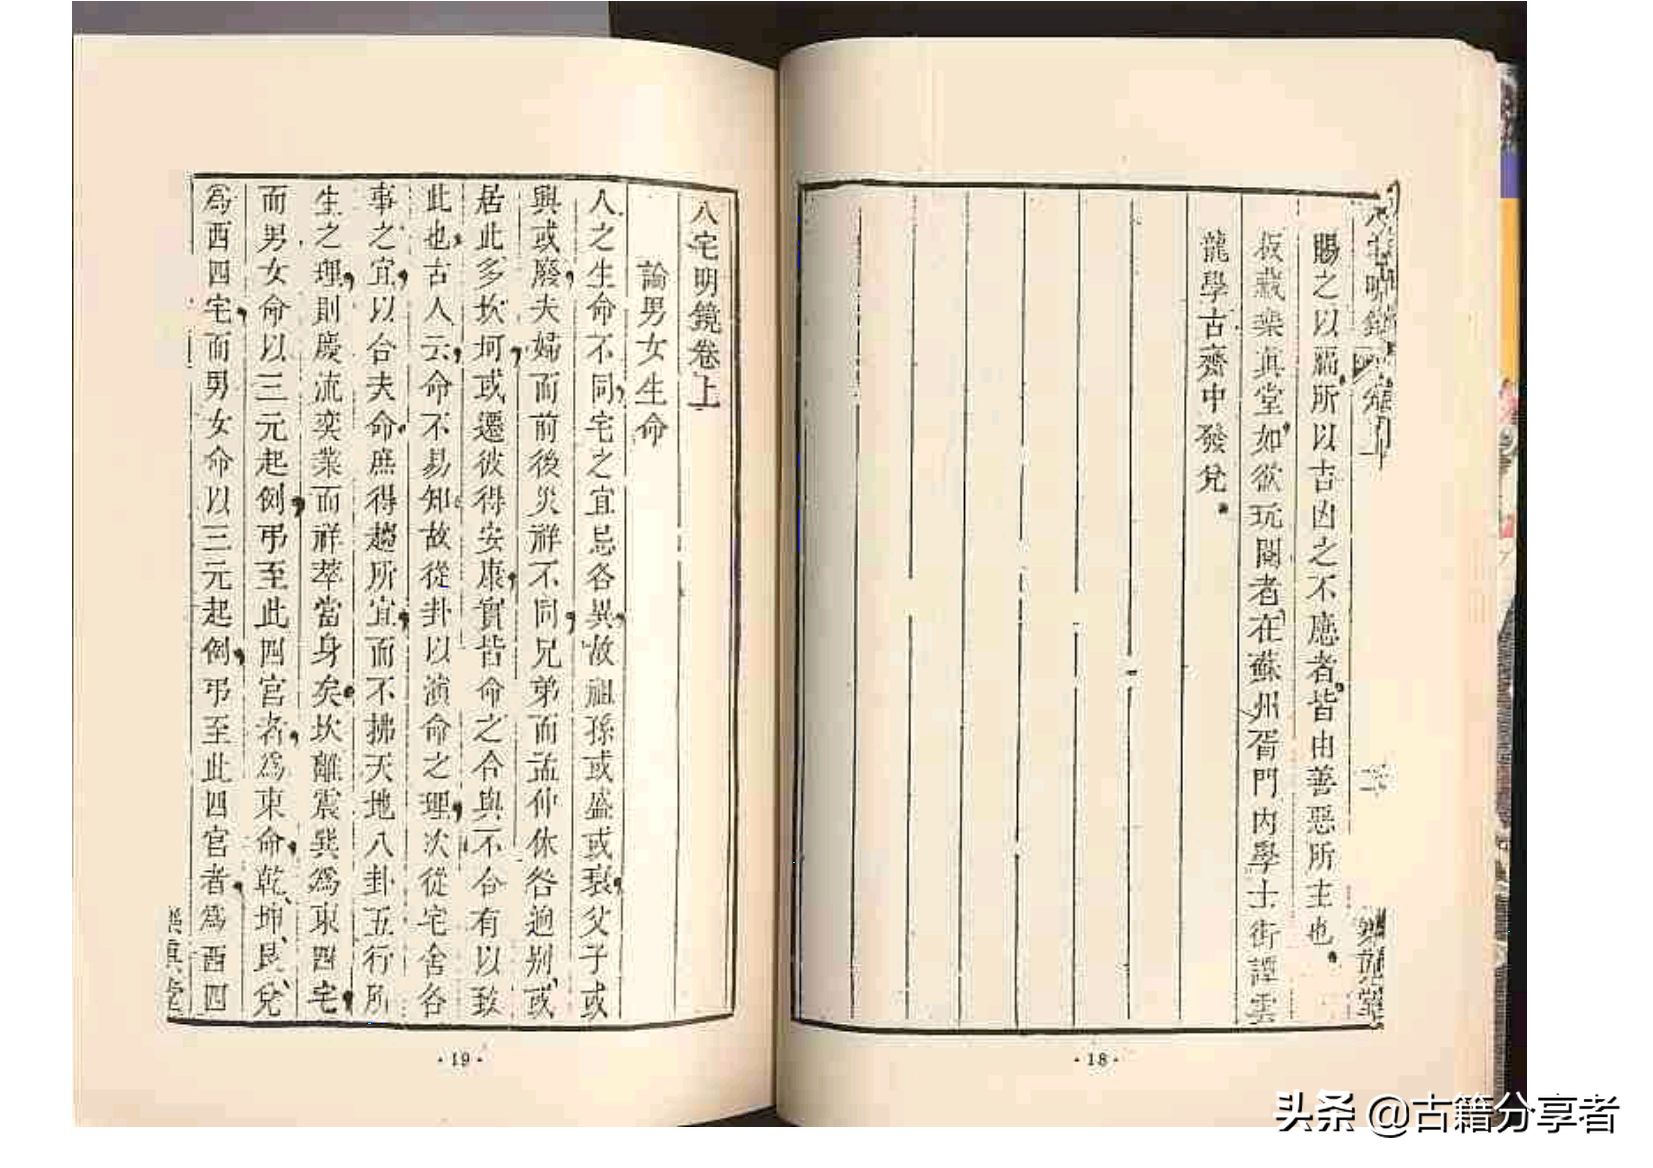 賜之以福所以吉凶之不應者皆由善惡所主也。
板藏樂真堂如欲玩閱者在蘇州胥門內學士街譚雲
龍學古齋中發兌。
·18·
八宅明鏡卷上
論男女生命
人之生命不同，宅之宜忌各異，故祖孫或盛或衰，父子或
興或廢，夫婦而前後災祥不同，兄弟而孟仲休咎逈别、或
居此多坎坷，或遷彼得安康，實皆命之合與不合有以致
此也，古人云，命不易知故從卦以演命之理，次從宅舍各
事之宜，以合夫命庶得趨所宜，而不拂天地八卦五行所
生之理，則慶流奕業而祥萃當身矣。坎離震巽為東四宅，
而男女命以三元起例，弔至此四宫者，為東命，乾、坤、艮、兌
為西四宅，而男女命以三元起例，弔至此四宫者，為西四
樂真堂
·19·
头条 @古籍分享者